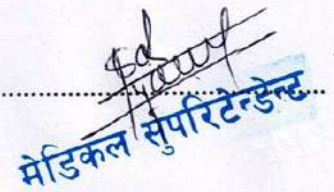 मेडिकल सुपरिटेन्डेन्ट